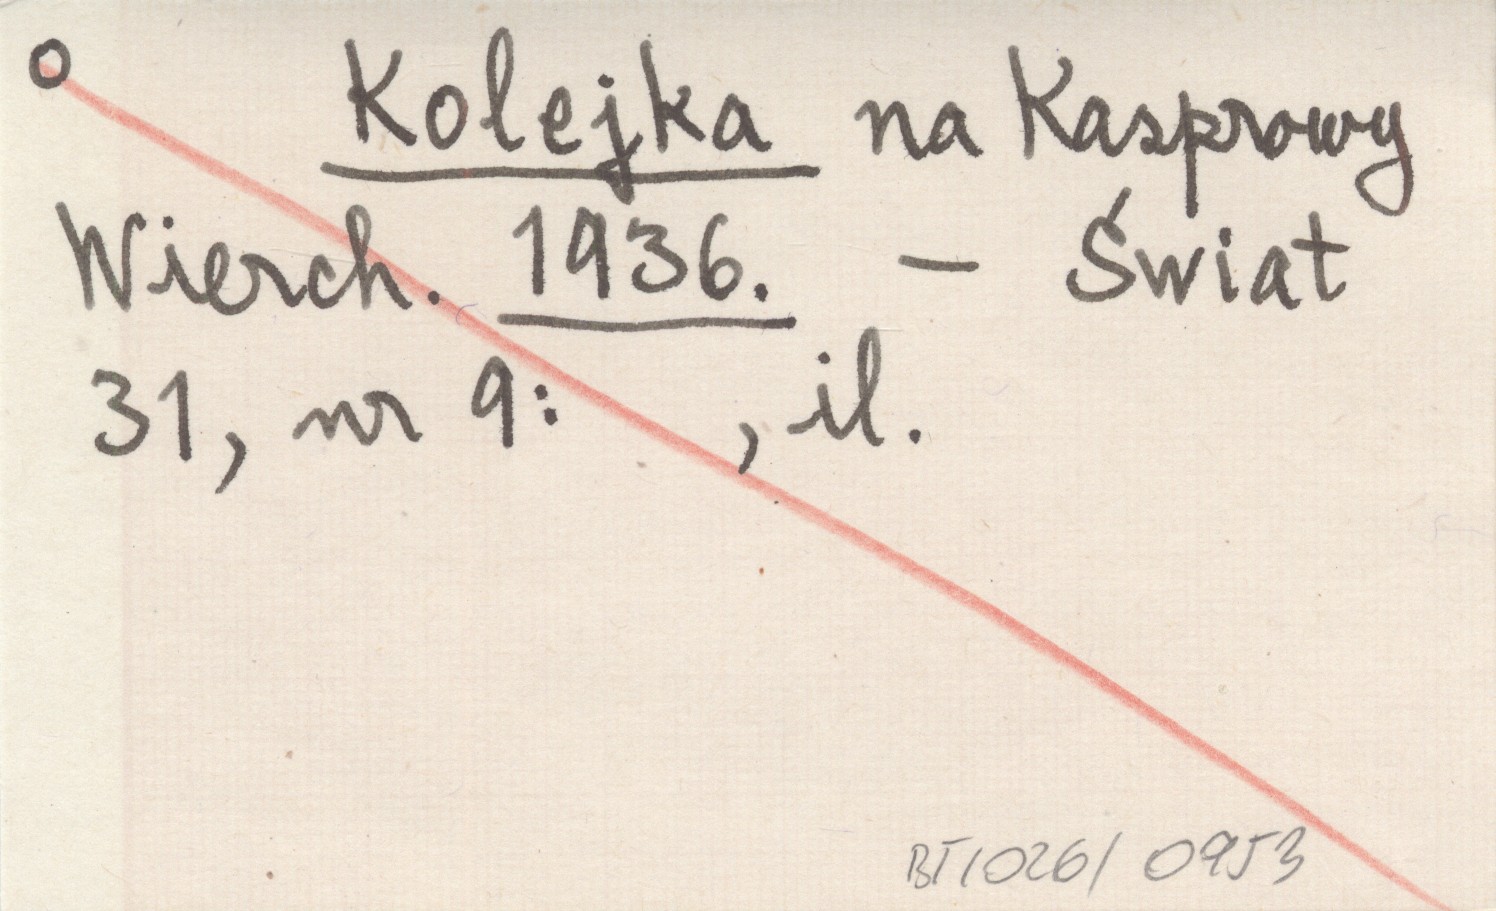 o Kolejka na Kasprowy
Wierch. 1936. – Świat
31, nr 9: , il.
BT1026/ 0953